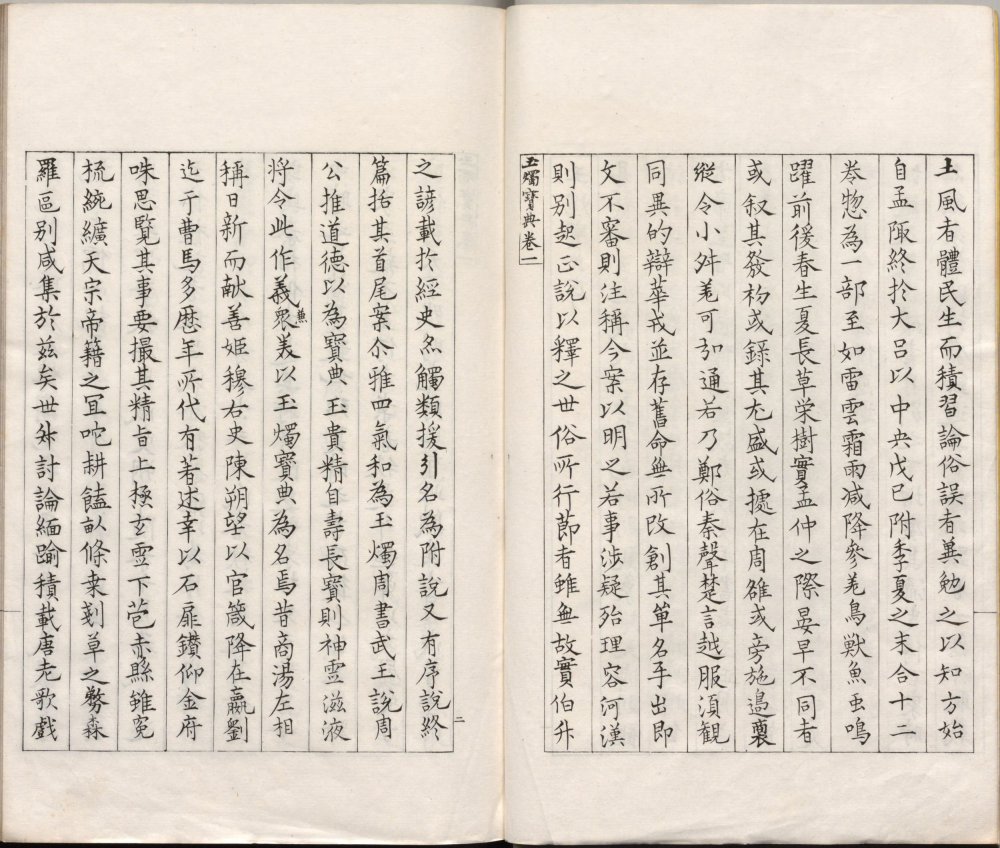 土風者體民生而積習論俗誤者兾勉之以知方始
自孟陬終於大呂以中央戊巳附季夏之末合十二
卷惣為一部至如雷雲霜雨减降參差鳥獸魚虫鳴
躍前後春生夏長草栄樹實孟仲之際晏早不同者
或叙其發初或錄其尤盛或據在周雒或旁施邉裔
縱令小舛差可弘通若乃鄭俗秦聲楚言越服湏觀
同異的辯華戎並存舊命無所改創其單名手出即
文不審則注稱今案以明之若事涉疑殆理容河漢
則别起正說以釋之世俗所行莭者雖無故實伯升
玉燭寶典卷一
之諺載於經史亦觸類援引名為附說又有序說終
篇括其首尾案尒雅四氣和為玉燭周書武王說周
公推道德以為寶典玉貴精自壽長寶則神霊滋液
將令此作義兼衆美以玉燭寶典為名焉昔商湯左相
稱日新而献善姬穆右史陳朔望以官箴降在嬴劉
迄于曹馬多歴年所代有著述幸以石扉鑽仰金府
味思覽其事要撮其精旨上極玄霊下苞赤縣雖寃
梳統纊天宗帝籍之冝咜耕饁畝條桒剗草之務森
羅區别咸集於兹矣世外討論緬踰積載唐老歌戲
二